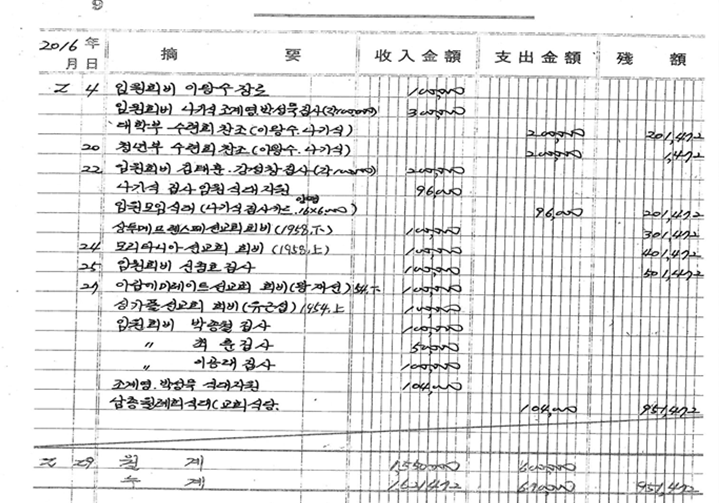 9
2016年
月 日 摘 要 收入金額 支出金額 残 額
2 4 임원회비 이광수 장로 100,000
임원회비 나기석조계영박성욱집사(각100,000) 300,000
대학부 수련회찬조(이광수.나기석) 200,000 201,472
20 청년부 수련회찬조(이광수.나기석) 200,000 1,472
22 임원회비 김태훈. 집사(각100,000) 200,000
나기석 집사 임원식대지원 96,000
임원모임식대(나기석집사카드.16x6,000) 96,000 201,472
선교회회비(1958,下) 100,000 301,472
24 모리타니아선교회 회비(1958,上) 100,000 401,472
25 임원회비 집사 100,000 501,472
27 아랍에미레이트선교회 회비 54,下 100,000
싱가폴선교회 회비(유근섭)1954,上 100,000
임원회비 박종철 집사 100,000
〃 최 훈 집사 50,000
〃 이용래 집사 100,000
조계영.박성욱 식대지원 104,000
삼층월례회식대(교회식당. 104,000 951,472
2 29 월 계 1,550,000 600,000
누 계 1,621,472 670,000 951,472